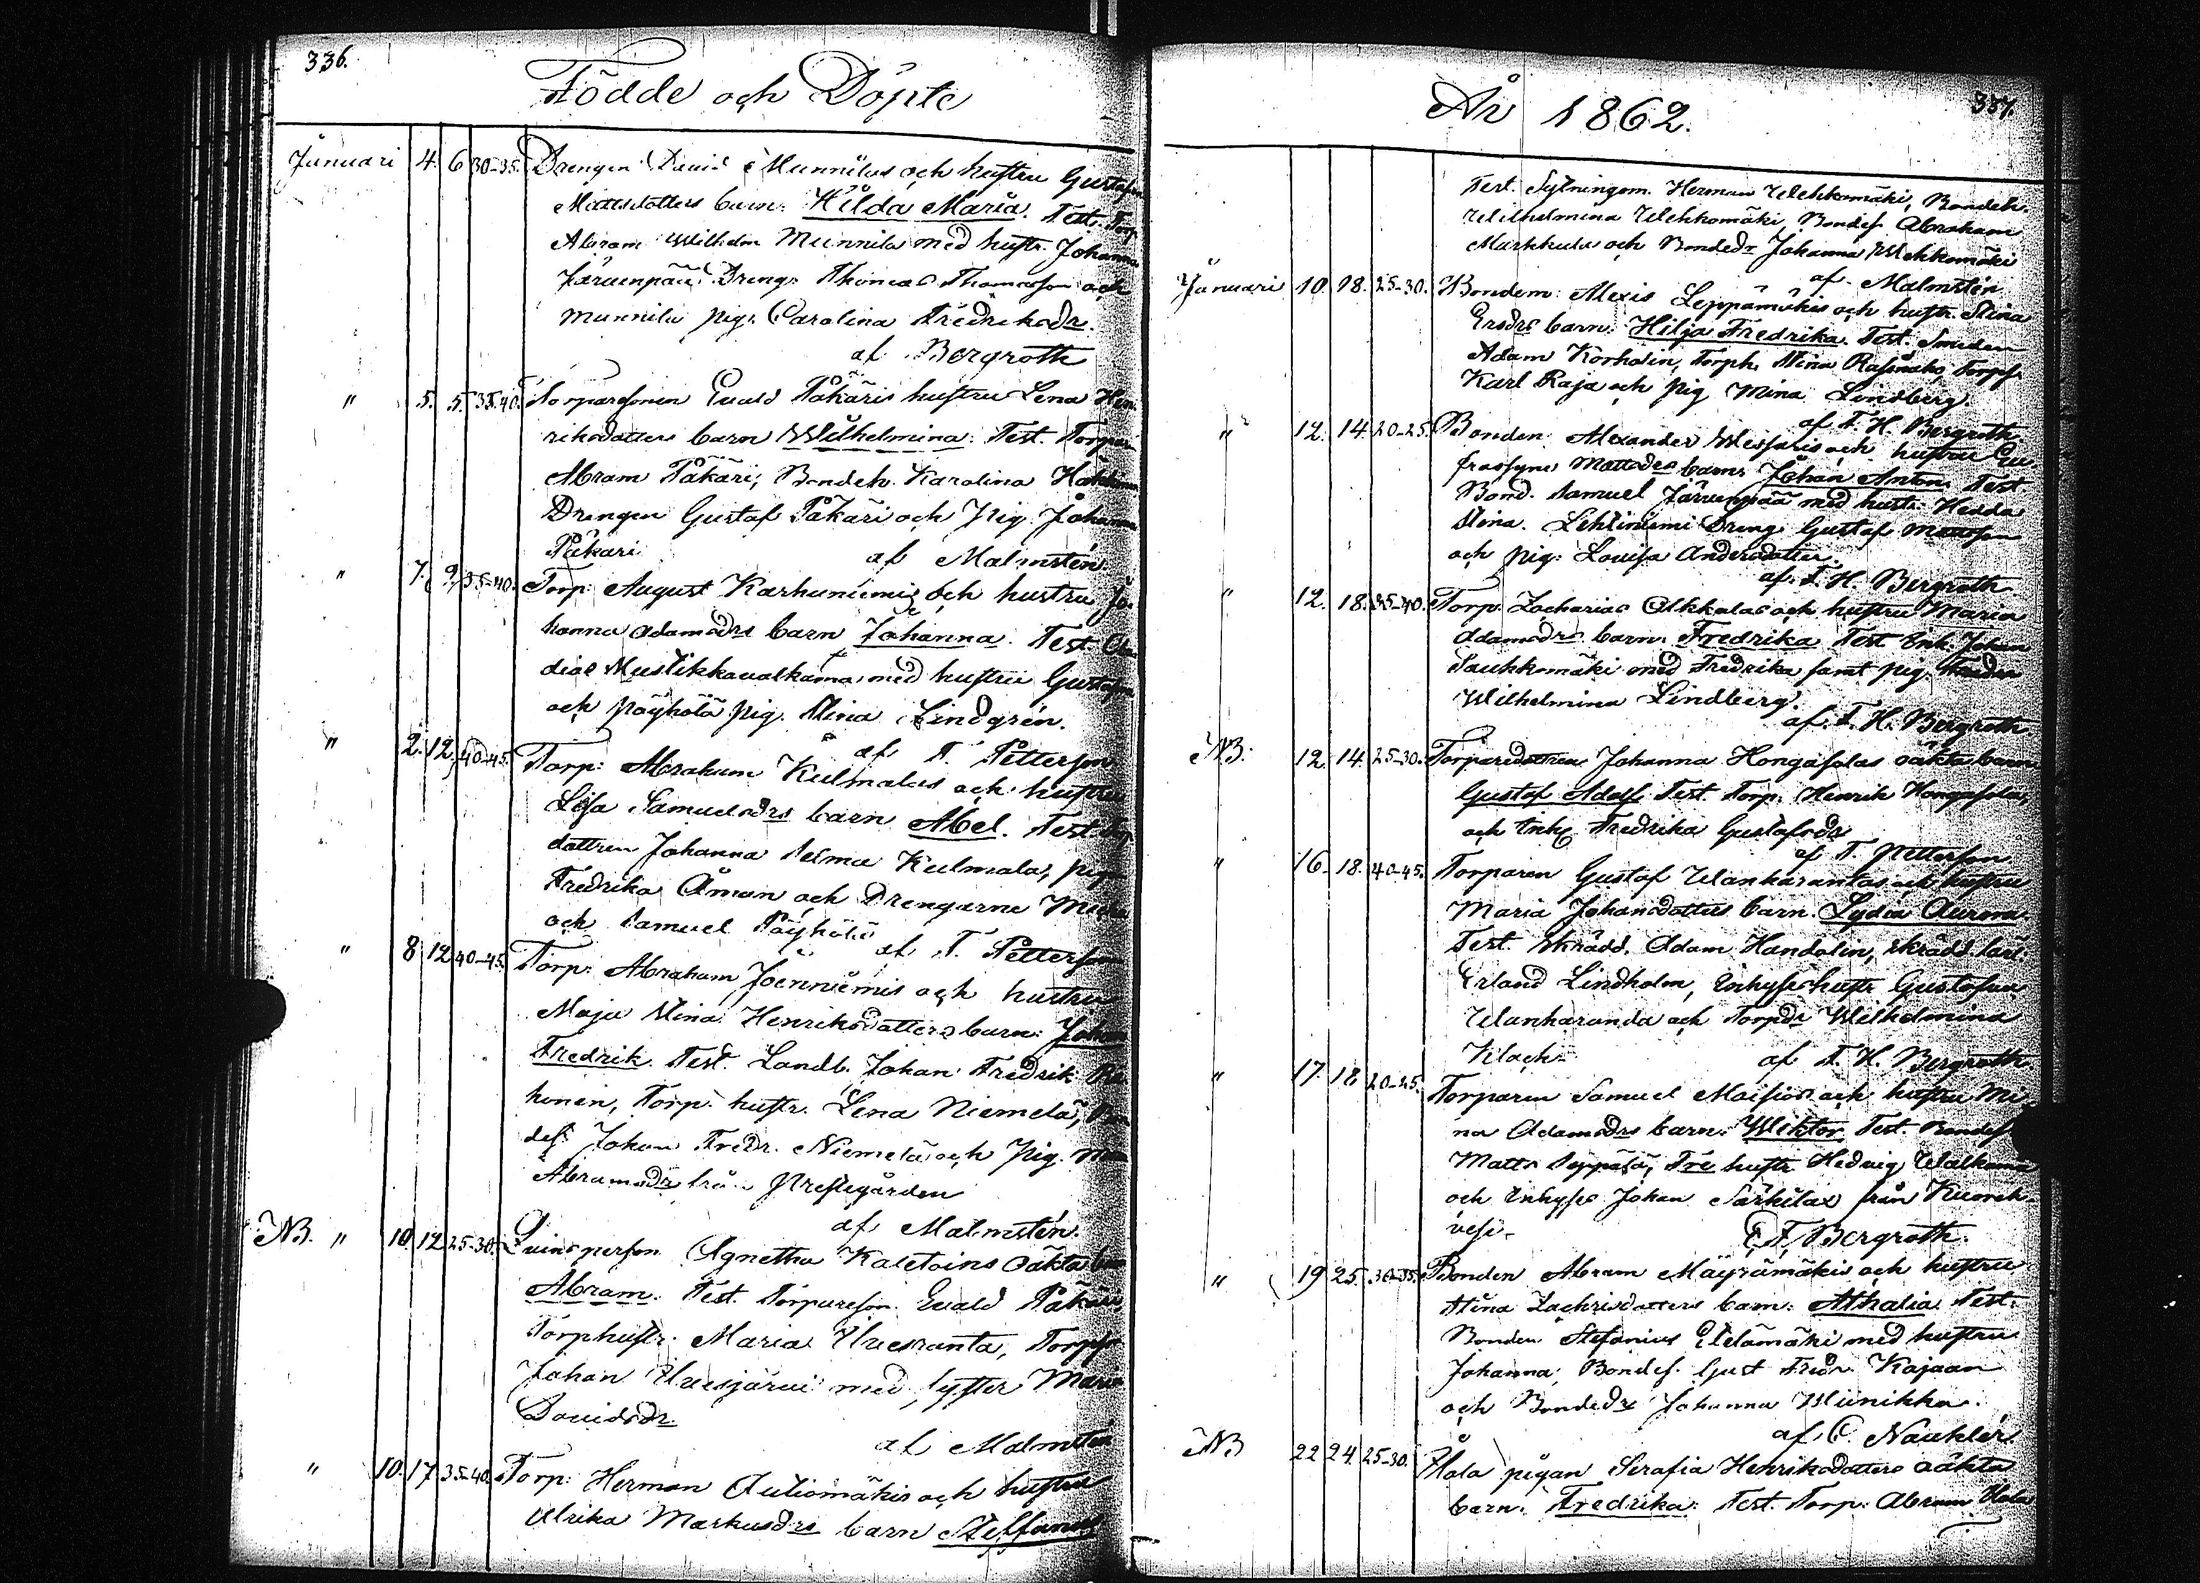 336.
Födde och Döpte
Januari 4. 6. 30-35. Drengen David Munnilas och hustru Gustafva
Mattsdotters barn: Hilda Maria. Test. Torp.
Abram Wilhelm Munnila med hustr. Johanna
Järvenpää, Dreng. Thomas Thomasson och
Munnila pig. Carolina Fredriksdr.
af Bergroth
" 5. 5. 35-40. Torparesonen Evald Påkäris hustru Lena Hen-
riksdotters barn Wilhelmina. Test. Torpar.
Abram Påkäri, Bondeh. Karolina
Drengen Gustaf Påkäri och Pig. Johanna
Påkäri af Malmstén.
" 7. 9. 35-40. Torp. August Karhuniemis och hustru Jo-
hanna Adamsdrs barn Johanna. Test.
dias Mustikkavalkama med hustru Gustafva
och Pöyhölä pig. Stina Lindgrén.
af T. Petterson
" 2. 12. 40-45. Torp: Abraham Kulmalas och hustru
Lisa Samuelsdrs barn Abel. Test.
dottren Johanna Selma Kulmala, pigan
Fredrika Åman och Drengarne
och Samuel Pöyhölä
af T. Petterson
" 8 12 40-45. Torp. Abraham Joenniemis och hustru
Maja Stina Henriksdotters barn: Johan
Fredrik. Test. Landb. Johan Fredrik
honen, Torp. hustr. Lena Niemelä,
des. Johan Fredr. Niemelä och Pig.
Abramsdr från Prestegården
af Malmstén.
NB. " 10 12 25-30. Qvinsperson Agnetha Kaletoins oäkta barn
Abram. Test. Torpareson Evald Påkäri,
Torphustr. Maria Uuexranta, Torpson
Johan Uuesjärvi med syster Maria
Davidsdr.
af Malmstén
" 10. 17 35-40. Torp: Herman Autiomäkis och hustru
Ulrika Markusdrs barn Steffanus
År 1862. 337.
Test. Sytningsm. Herman Wehkomäki, Bondeh.
Wilhelmina Wehkomäki, Bondes. Abraham
Markkula och Bondedr Johanna Wehkomäki
af Malmstén
Januari 10. 18. 25-30. Bondem: Alexis Leppämäkis och hustr. Stina
Ersdrs barn: Hilja Fredrika. Test. Smeden
Adam Korhoin, Torph. Stina Rasinaho, Torps.
Karl Raja och pig Mina Lindberg.
af F. H. Bergroth
" 12. 14 20-25. Bonden Alexander Wessaris och hustru Eu-
frosyne Mattsdrs barn: Johan Anton. Test.
Bond. Samuel Järvenpää med hustr. Hedda
Stina. Lehtiniemi Dreng Gustaf Mattsson
och pig: Lovisa Andersdotter.
af. F. H. Bergroth
" 12. 18. 35-40. Torp. Zacharias Alkkulas och hustru Maria
Adamsdrs barn: Fredrika Test Enk. Johan
Sauhkomäki med Fredrika samt pig. Hedda
Wilhelmina Lindberg.
af. F. H. Bergroth
NB. 12. 14. 25-30. Torparedottren Johanna Hongasalas oäkta barn
Gustaf Adolf. Test. Torp. Henrik Hongasala,
och Enk. Fredrika Gustafsdr
af T. Petterson
" 16. 18. 40-45. Torparen Gustaf Wanharantas och hustru
Maria Johansdotters barn. Lydia Aurora
Test. Skrädd. Adam Handolin, Skrädd. lärl.
Erland Lindholm, Inhyses hustr Gustafva
Wanharanda och Torpdr Wilhelmina
Klack. af F. H. Bergroth
" 17. 18. 20-25. Torparen Samuel Maisios och hustru Mi-
na Adamsdrs barn: Wiktor Test. Bondes.
Matts Seppälä, Fre hustr Hedvig Walkama
och Inhyses Johan Särkilax från Kuoreh-
vesi. F. Bergroth.
" 19 25. 30-35. Bonden Abram Mäyrämäkis och hustru
Stina Zachrisdotters barn: Athalia. Test.
Bonden Stefanius Etelämäki med hustru
Johanna, Bondes. Gust Fredr. Kajaan
och Bondedr Johanna Wiinikka.
af C. Nauklér.
NB 22 24 25-30. Ylola pigan Serafia Henriksdotters oäkta
barn: Fredrika. Test. Torp. Abram